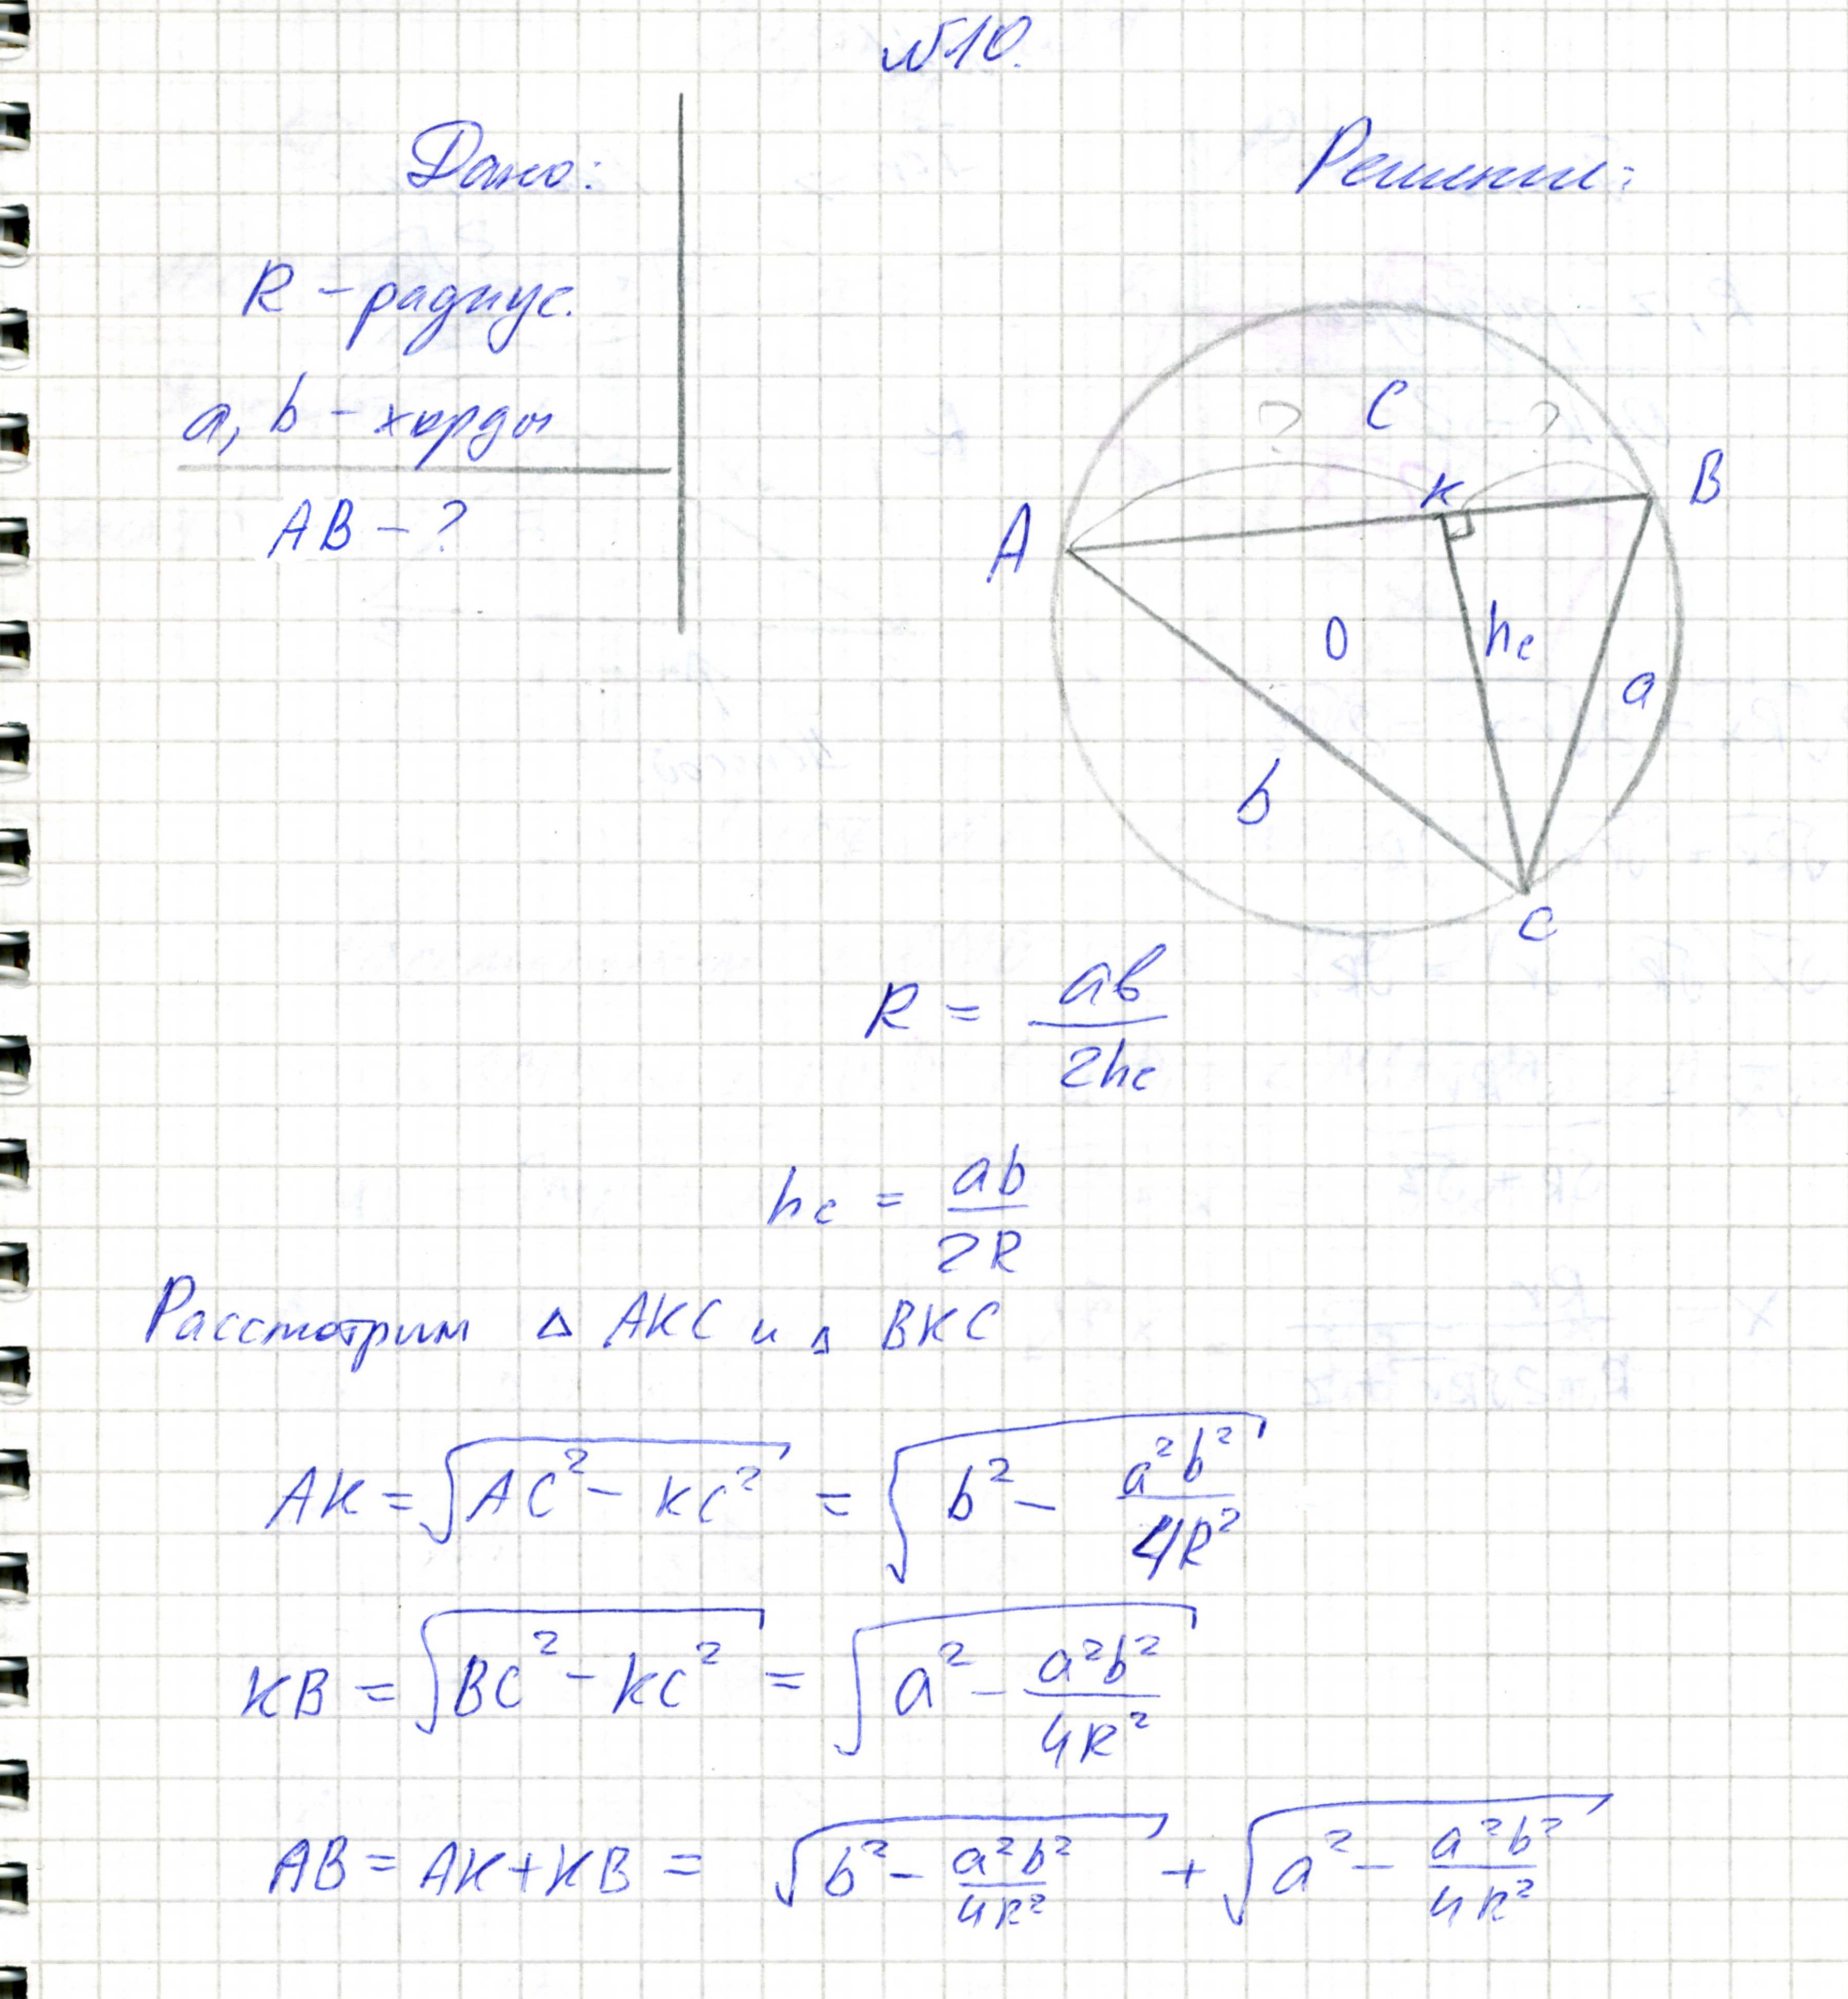 №10.
Дано:
Решение:
R – радиус.
a, b – хорды
AB – ?
? C ?
A K B
O hc a
b
C
R = ab / 2hc
hc = ab / 2R
Рассмотрим Δ AKC и Δ BKC
AK = √(AC² – KC²) = √(b² – a²b² / 4R²)
KB = √(BC² – KC²) = √(a² – a²b² / 4R²)
AB = AK + KB = √(b² – a²b² / 4R²) + √(a² – a²b² / 4R²)